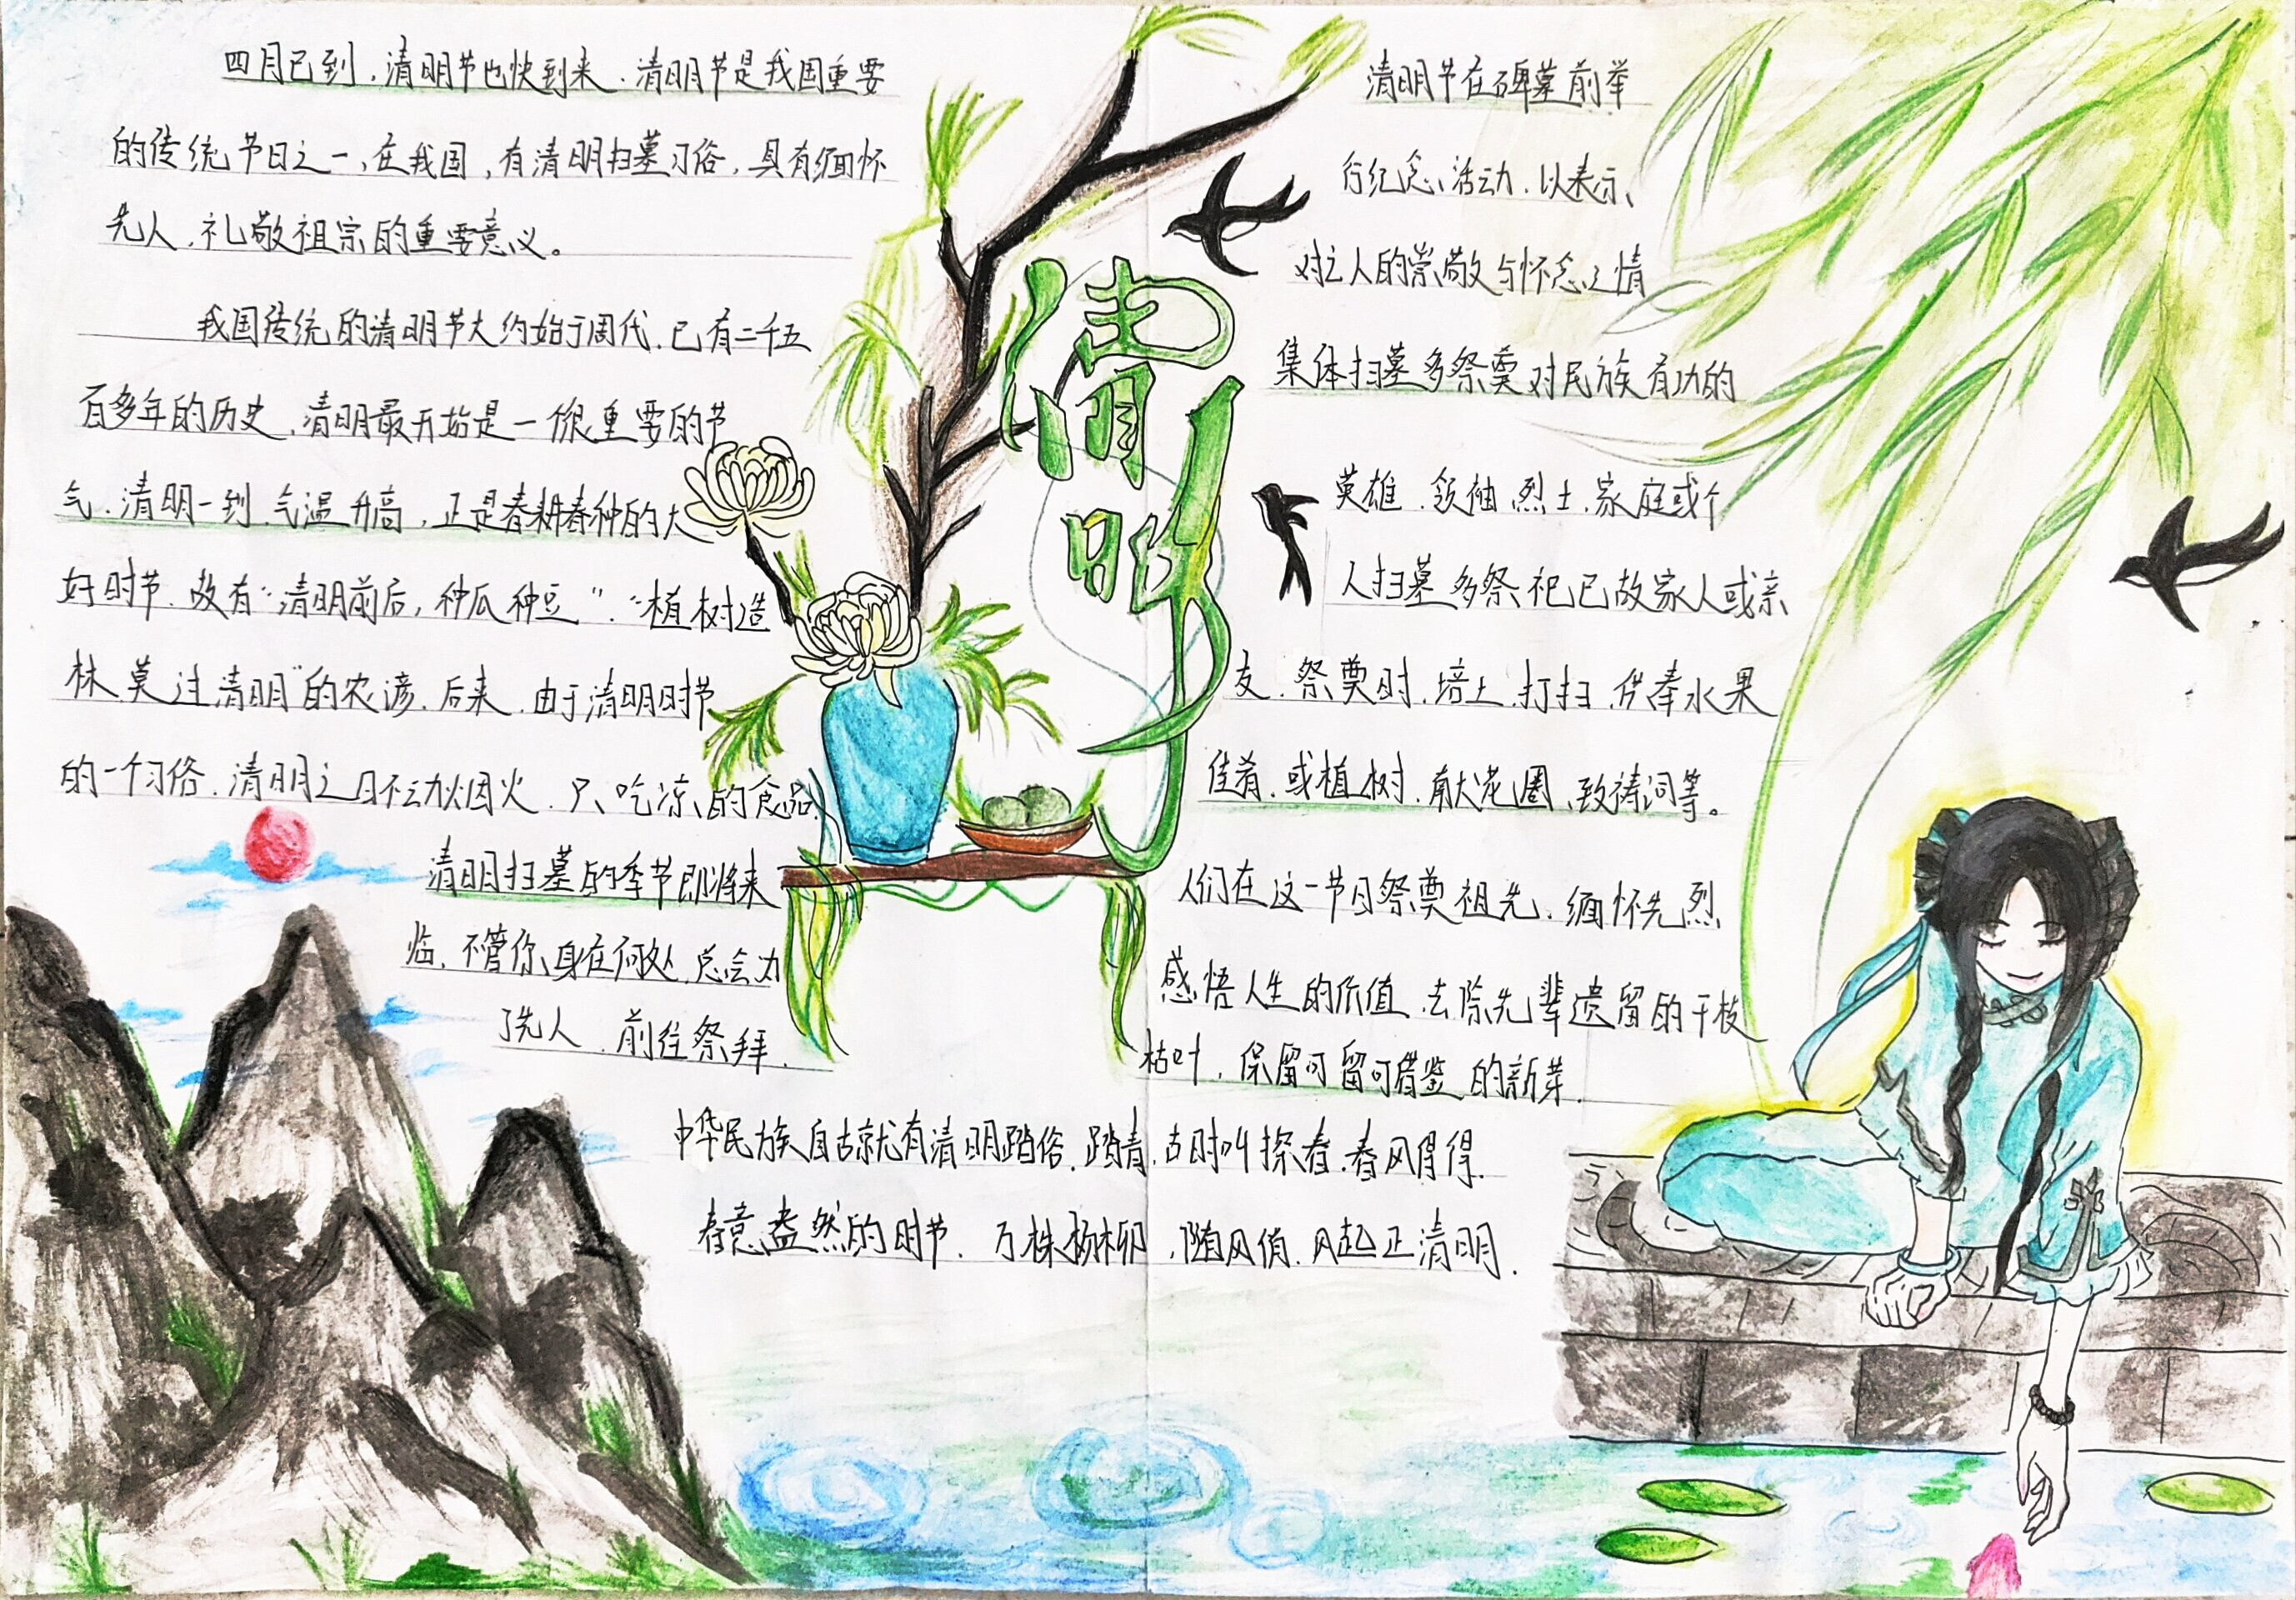 四月已到，清明节也快到来．清明节是我国重要
的传统节日之一，在我国，有清明扫墓习俗，具有缅怀
先人，礼敬祖宗的重要意义。
我国传统的清明节大约始于周代，已有二千五
百多年的历史，清明最开始是一很重要的节
气．清明一到，气温升高，正是春耕春种的大
好时节．故有“清明前后，种瓜种豆”．“植树造
林，莫过清明”的农谚．后来，由于清明时节
的一个习俗．清明之日不动烟火．只吃凉的食品．
清明扫墓的季节即将来
临．不管你身在何处，总会为
了先人，前往祭拜．
清明
清明节在碑墓前举
行纪念活动，以表示
对亡人的崇敬与怀念之情
集体扫墓多祭奠对民族有功的
英雄．领袖．烈士．家庭或个
人扫墓多祭祀已故家人或亲
友．祭奠时，培土．打扫．供奉水果
佳肴．或植树．献花圈．致祷词等。
人们在这一节日祭奠祖先．缅怀先烈
感悟人生的价值．去除先辈遗留的干枝
枯叶，保留可留可借鉴的新芽．
中华民族自古就有清明踏俗．踏青．古时叫探春．春风得得．
春意盎然的时节．万株杨柳，随风俏．风起正清明．